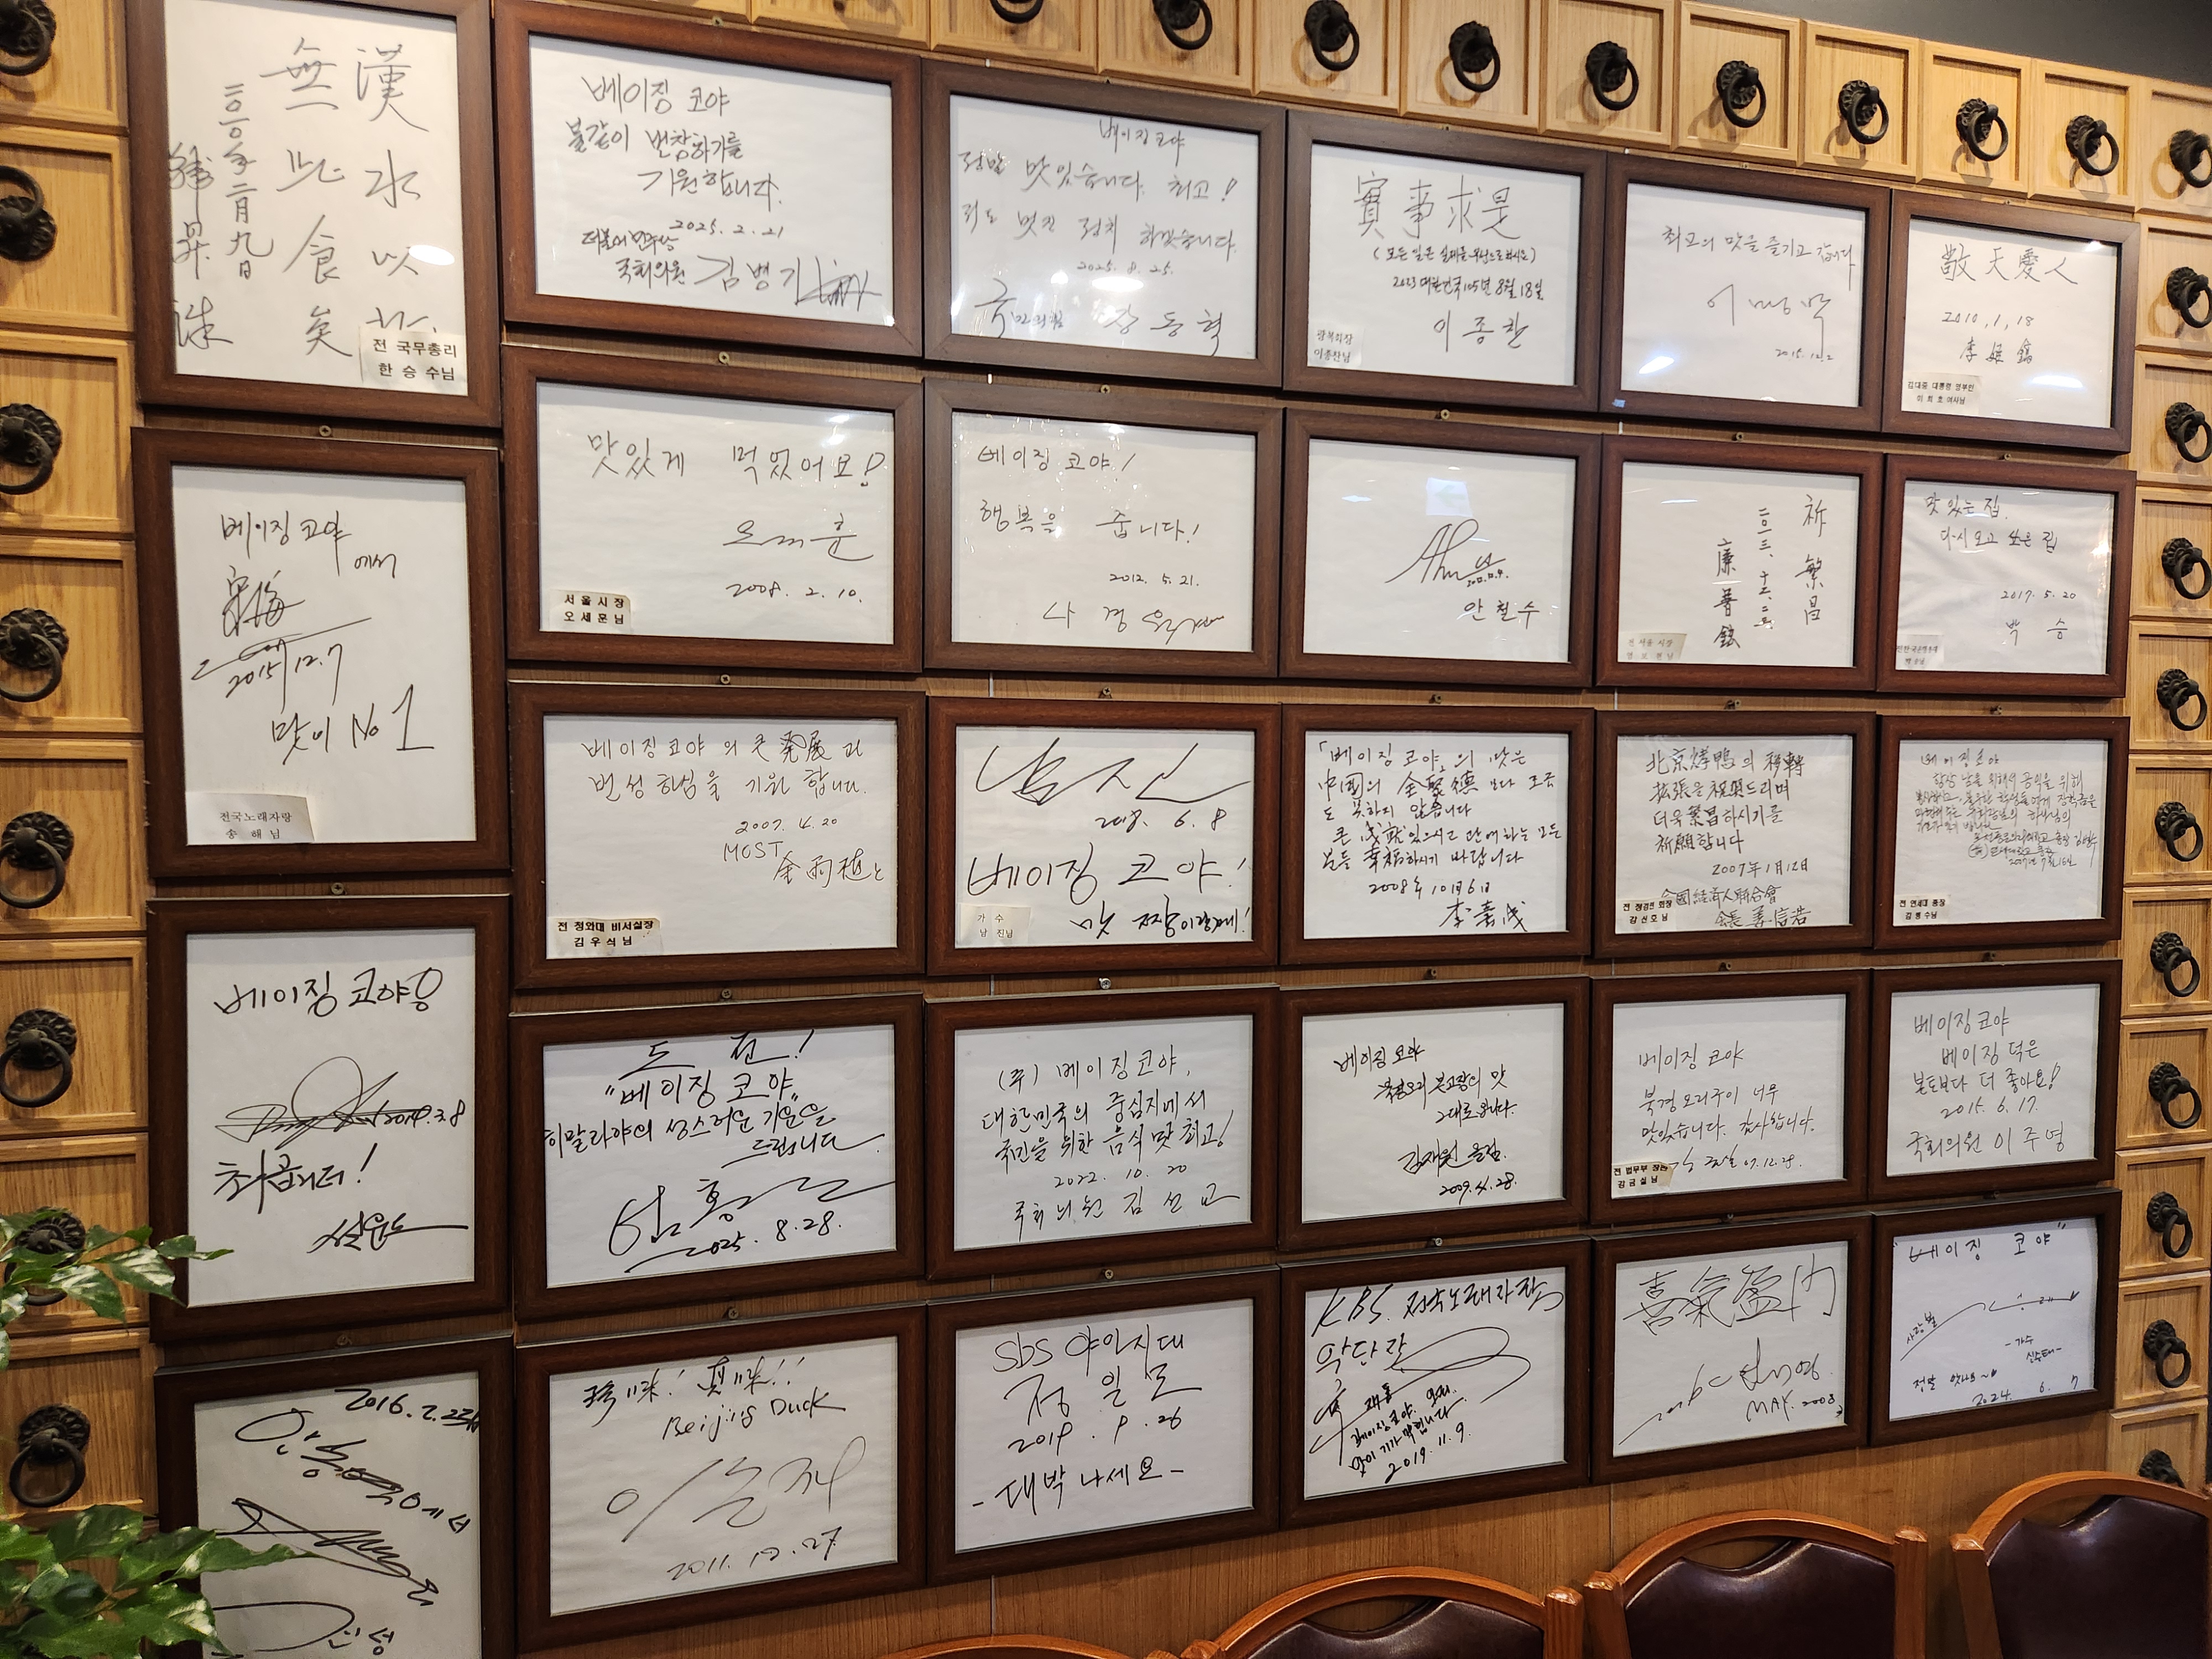 漢水以
無此食矣
二〇一〇年二月九日
韓昇洙
전 국무총리
한승수님
베이징 코야
불같이 번창하기를
기원합니다.
2025. 2. 21
더불어민주당
국회의원 김병기
베이징 코야
정말 맛있습니다. 최고!
저도 멋진 정치 하겠습니다.
2025. 8. 25.
국민의힘 장동혁
實事求是
2023 대한민국 105년 8월 18일
이종찬
광복회장
이종찬님
최고의 맛을 즐기고 갑니다
이명박
2015. 12. 2
敬天愛人
2010. 1. 18
李姬鎬
김대중 대통령 영부인
이희호 여사님
베이징 코야
에서
宋海
2015. 12. 7
맛이 No 1
전국노래자랑
송해님
맛있게 먹었어요!
오세훈
2008. 2. 10.
서울시장
오세훈님
베이징 코야!
행복을 줍니다!
2012. 5. 21.
나경원
안철수
祈繁昌
二〇一三.十二.二三.
廉普鉉
전 서울 시장
염보현님
맛있는 집.
다시 오고 싶은 집
2017. 5. 20
박승
베이징 코야의 큰 發展과
번성하심을 기원합니다.
2007. 4. 20
MOST
金雨植
전 청와대 비서실장
김우식님
남진
2018. 6. 8
베이징 코야!
맛 짱이랑께!
가수
남진님
「베이징 코야」의 맛은
中國의 全聚德보다 조금
도 못하지 않습니다
큰 成就 있으시고 관여하는 모든
분들 幸福하시기 바랍니다
2008年 10月 6日
北京烤鴨의 移轉
拡張을 祝賀드리며
더욱 繁昌하시기를
祈願합니다
2007年 1月 12日
全國経済人聯合會
会長 姜信浩
강신호님
베이징 코야
전 연세대 총장
베이징 코야용
2014. 3. 8
최곱니더!
설운도
도전!
"베이징 코야"
히말라야의 성스러운 기운을
드립니다
엄홍길
2025. 8. 28.
(주) 베이징 코야,
대한민국의 중심지에서
국민을 위한 음식 맛 최고!
2022. 10. 20
국회의원 김선교
베이징 코야
북경오리 본고장의 맛
그대로입니다.
2009. 4. 28.
베이징 코야
북경오리구이 너무
맛있습니다. 감사합니다.
강금실 07. 12. 28.
전 법무부 장관
강금실님
베이징 코야
베이징 덕은
본토보다 더 좋아요!
2015. 6. 17.
국회의원 이주영
2016. 2. 25
에서
珍味! 真味!!
Beijing Duck
2011. 12. 27
SBS 야인시대
정일모
2019. 9. 26
-대박 나세요-
KBS. 전국노래자랑
악단장
신재동
베이징 코야. 오리.
맛이 기가 막힙니다
2019. 11. 9.
喜氣盈門
MBC
MAY. 2008
"베이징 코야"
-가수
정말 맛나요~
2024. 6. 7